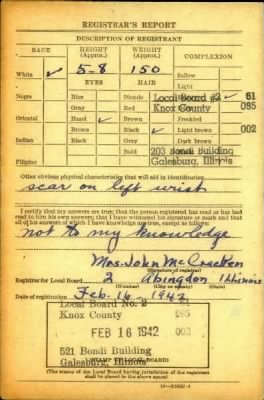 REGISTRAR'S REPORT
DESCRIPTION OF REGISTRANT
RACE HEIGHT (Approx.) WEIGHT (Approx.) COMPLEXION
White ✓ 5-8 150 Sallow
EYES HAIR Light
Negro Blue Blonde Local Board #2 ✓ 61
Gray Red Knox County 085
Oriental Hazel ✓ Brown Freckled
Brown Black ✓ Light brown 002
Indian Black Gray Dark brown
Bald 203 Bondi Building
Filipino Galesburg, Illinois
Other obvious physical characteristics that will aid in identification
scar on left wrist
I certify that my answers are true; that the person registered has read or has had
read to him his own answers; that I have witnessed his signature or mark and that
all of his answers of which I have knowledge are true, except as follows:
not to my knowledge
Mrs. John McCracken
(Signature of registrar)
Registrar for Local Board 2 Abingdon Illinois
(Number) (City or county) (State)
Date of registration Feb. 16, 1942
Local Board No. 2
Knox County
FEB 16 1942 003
521 Bondi Building
Galesburg, Illinois
(STAMP OF LOCAL BOARD)
(The stamp of the Local Board having jurisdiction of the registrant
shall be placed in the above space.)